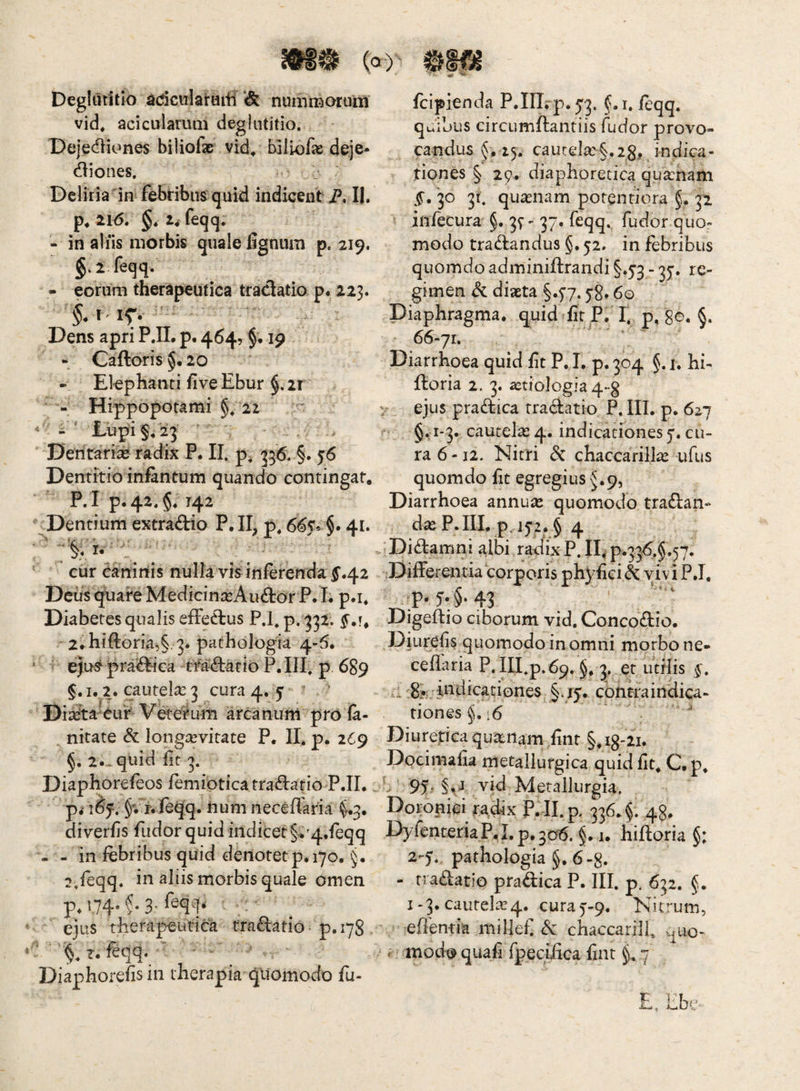 (o)
Deglutitio acicularum & nummorum
vid. acicularum deglutitio.
Dejectiones biliosæ vid. biliosæ deje-
ctiones.
Deliria in febribus quid indicent P. II.
p. 216. §. 2. seqq.
- in aliis morbis quale signum p. 219.
§. 2 seqq.
- eorum therapeutica tractatio p. 223.
§. 1 - 15.
Dens apri P.II. p. 464, §. 19
- Castoris §. 20
- Elephanti sive Ebur §. 21
- Hippopotami §. 22
- Lupi §. 23
Dentariæ radix P. II. p. 336. §. 56
Dentitio infantum quando contingat.
P.I p. 42. §. 142
Dentium extractio P. II, p. 665. §. 41.
§. 1.
cur caninis nulla vis inferenda §.42
Deus quare Medicinæ Auctor P. I. p.1.
Diabetes qualis effectus P.I. p. 332. §.1.
2. historia, §. 3. pathologia 4-6.
ejus practica tractatio P. III. p 689
§. 1. 2. cautelæ 3 cura 4. 5
Diæta cur Veterum arcanum pro sa-
nitate & longævitate P. II. p. 269
§. 2. quid sit 3.
Diaphoreseos semiotica tractatio P.II.
p. 165. §. 1. seqq. num necessaria §.3.
diversis sudor quid indicet §. 4. seqq
- - in febribus quid denotet p. 170. §.
2. seqq. in aliis morbis quale omen
p. 174. §. 3. seqq.
ejus therapeutica tractatio p. 178
§. 2. seqq.
Diaphoresis in therapia quomodo su-
scipienda P.III. p. 53. §. 1. seqq.
quibus circumstantiis sudor provo-
candus §. 25. cautelæ §. 28. indica-
tiones § 29. diaphoretica quænam
§. 30 31. quænam potentiora §. 32
insecura §. 35 - 37. seqq. sudor quo-
modo tractandus §. 52. in febribus
quomdo administrandi §.53 - 35. re-
gimen & diæta §.57. 58. 60
Diaphragma. quid sit P. I. p. 80. §.
66-71.
Diarrhoea quid sit P. I. p. 304 §. 1. hi-
storia 2. 3. ætiologia 4-8
ejus practica tractatio P. III. p. 627
§. 1-3. cautelæ 4. indicationes 5. cu-
ra 6 - 12. Nitri & chaccarillæ usus
quomdo sit egregius §.9,
Diarrhoea annuæ quomodo tractan-
dæ P. III. p. 152. § 4
Dictamni albi radix P. II, p.336.§.57.
Differentia corporis physici & vivi P.I.
p. 5. §. 43
Digestio ciborum vid. Concoctio.
Diuresis quomodo in omni morbo ne-
cessaria P. III.p. 69. §. 3. et utilis §.
8. indicationes §. 15. contraindica-
tiones §. 16
Diuretica quænam sint §. 18-21.
Docimasia metallurgica quid sit. C. p.
95. §. 1 vid Metallurgia.
Doronici radix P. II. p. 336. §. 48.
Dysenteria P. I. p. 306. §. 1. historia §:
2-5. pathologia §. 6 -8.
- tractatio practica P. III. p. 632. §.
1 - 3. cautelæ 4. cura 5-9. Nitrum,
essentia millef. & chaccarill. quo-
modo quasi specifica sint §. 7
E. Ebe